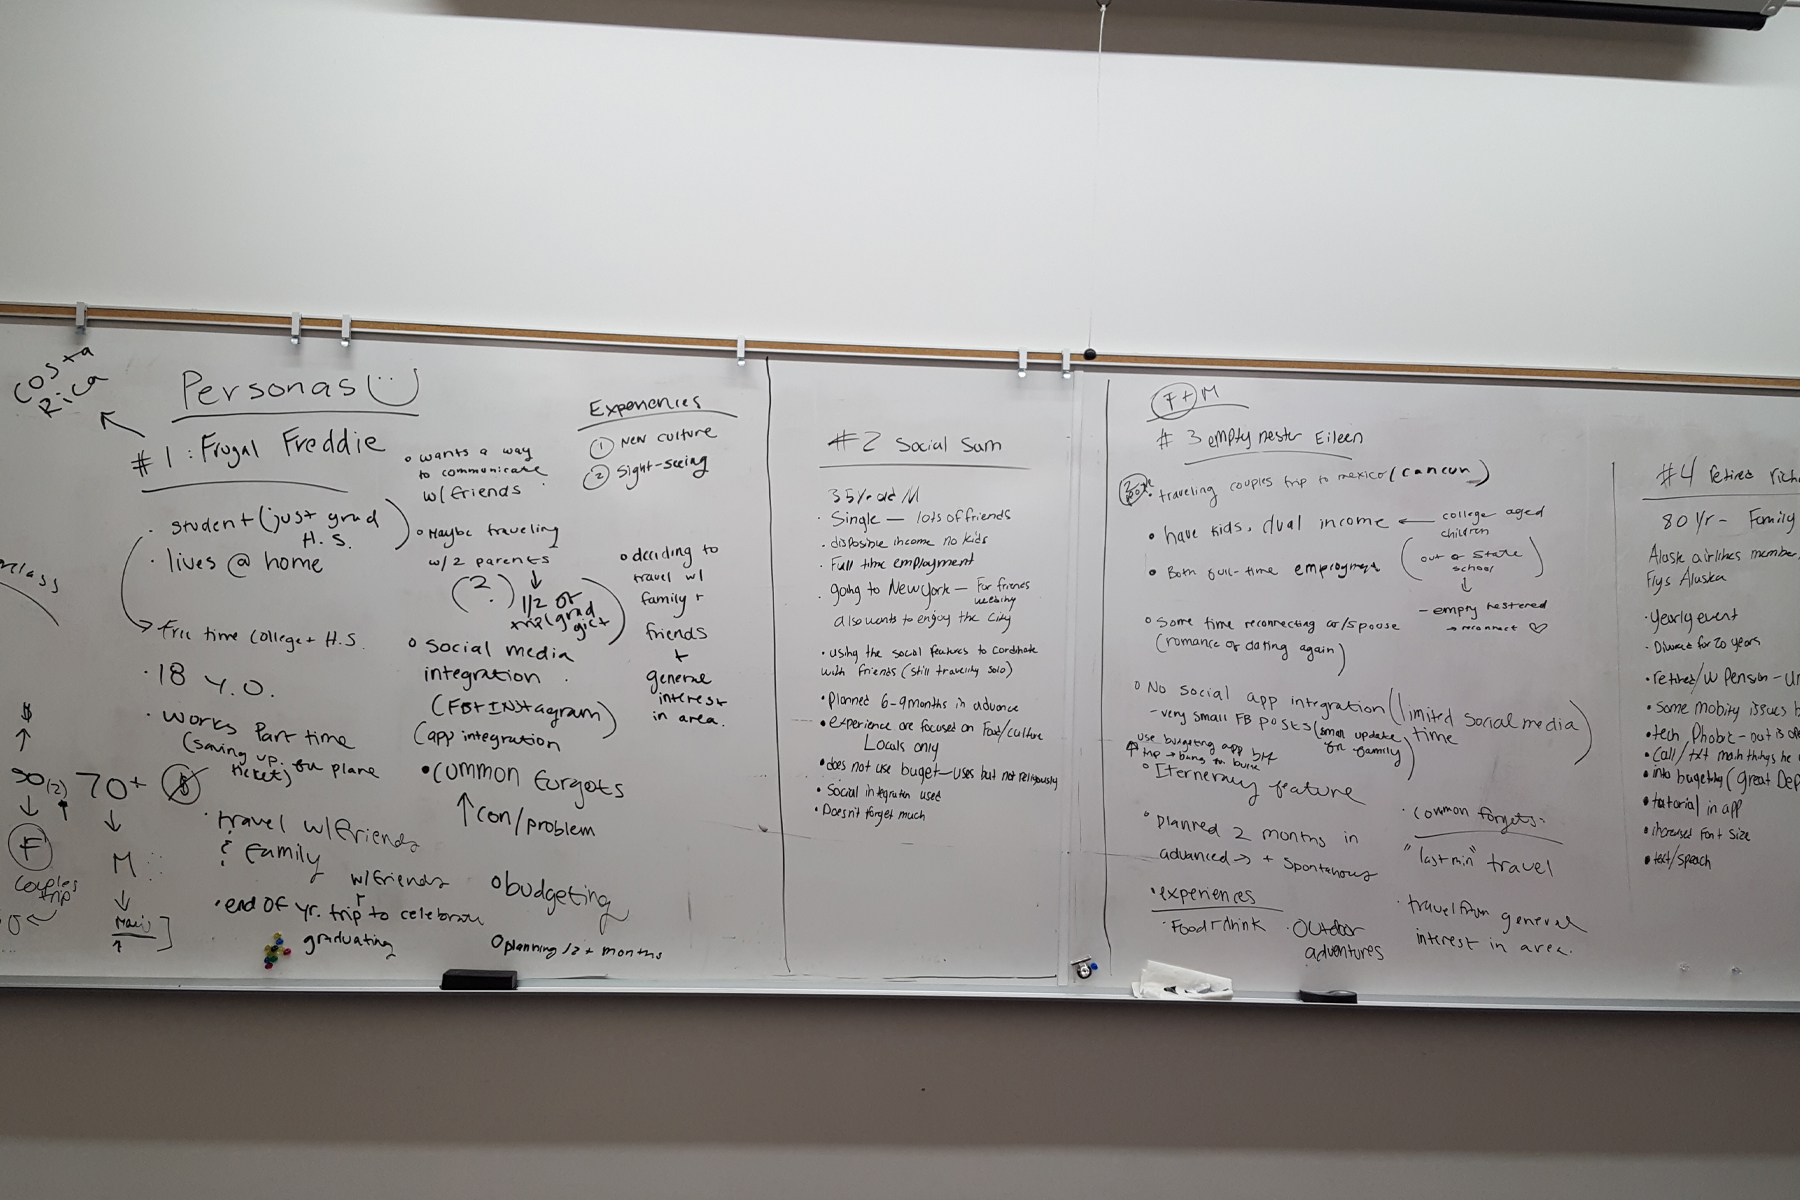 Costa
Rica
Personas
#1: Frugal Freddie
student (just grad
H.S.
lives @ home
free time college + H.S.
18 Y.O.
works Part time
(saving up for plane
ticket)
travel w/friends
& family
w/friends
end of yr. trip to celebrate
graduating
wants a way
to communicate
w/friends
Maybe traveling
w/ 2 parents
(?)
1/2 of
trip (grad
gift)
social media
integration
(FB + INstagram)
(app integration
common forgets
con/problem
budgeting
planning 12+ months
Experiences
1 New culture
2 Sight-seeing
deciding to
travel w/
family +
friends
+
general
interest
in area.
$
(2)
70+
$
F
M
couples
trip
#2 Social Sam
35 Yr old M
Single — lots of friends
disposible income no kids
Full time employment
going to New York — For friends
wedding
also wants to enjoy the City
using the social features to cordinate
with friends (still traveling solo)
Planned 6-9 months in advance
experience are focused on Food/culture
Locals only
does not use buget—uses but not religiously
Social integration used
Doesn't forget much
F + M
#3 empty nester Eileen
traveling couples trip to mexico (cancun)
have kids, dual income
college aged
children
(out of state
school)
Both full-time employment
- empty nestered
→ reconnect
Some time reconnecting w/spouse
(romance or dating again)
No social app integration (limited social media
time)
- very small FB posts (small update
for family)
use budgeting app
Iternerary feature
planned 2 months in
advanced → + spontanous
experiences
Food + drink
Outdoor
adventures
common forgets:
"last min" travel
general
interest in area.
#4 retired Rich
80 Yr - Family
Alask airlines member,
Flys Alaska
Yearly event
Divorced for 20 years
retired/w Pension - 
Some mobity issues
tech Phobic -
Call/txt main things he
into bugeting (Great Dep
tutorial in app
increased Font Size
text/speach